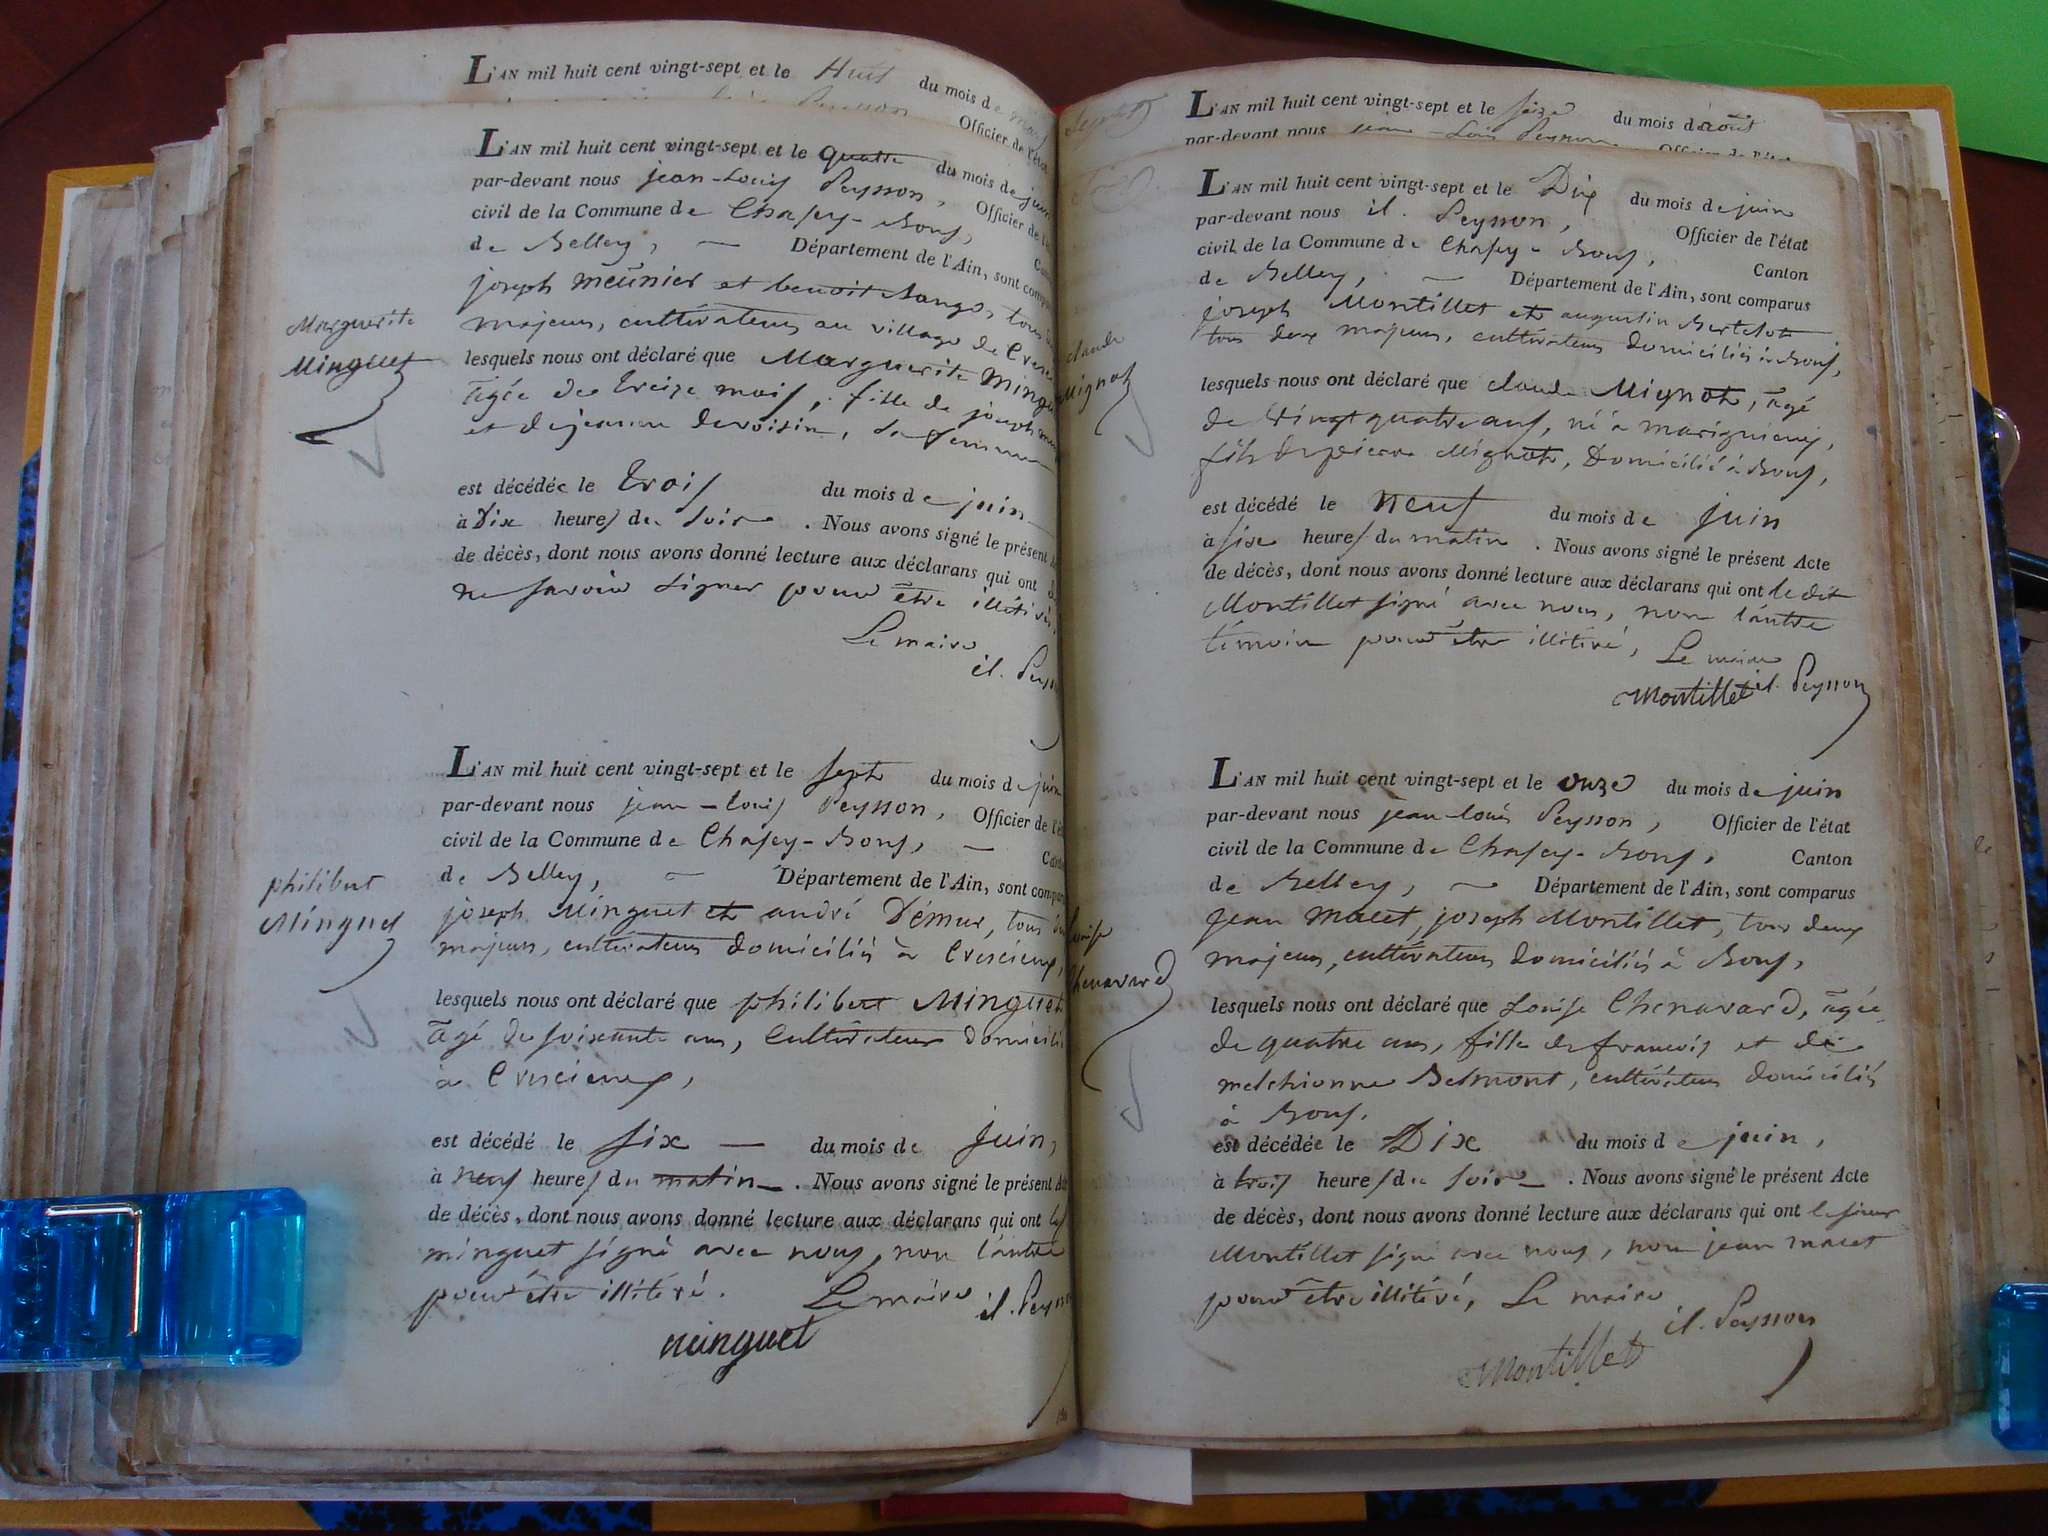 L'AN mil huit cent vingt-sept et le Huit du mois de mars
Officier de l'état
L'AN mil huit cent vingt-sept et le quatre du mois de juin
par-devant nous jean-Louis Peysson, Officier de l'
civil de la Commune de Chasey-Bons,
de Belley, — Département de l'Ain, sont compa
joseph meunier et benoit Sange, tous
majeurs, cultivateurs au village de
Marguerite
Minguet
lesquels nous ont déclaré que Marguerite Mingu
âgée de treize mois, fille de joseph
et de jeanne devoisin, sa femme
est décédée le trois du mois de juin
à Dix heures du soir. Nous avons signé le présent
de décès, dont nous avons donné lecture aux déclarans qui ont
ne savoir signer pour être illitéré
Le maire
jl. Peyss
L'AN mil huit cent vingt-sept et le sept du mois de juin
par-devant nous jean-louis Peysson, Officier de l'é
civil de la Commune de Chasey-Bons, — Canto
de Belley, — Département de l'Ain, sont compar
philibert
Minguet
joseph Minguet et andré Démur, tous
majeurs, cultivateurs domiciliés à Crescieux,
lesquels nous ont déclaré que philibert Minguet
âgé de soixante ans, Cultivateur domicilié
à Crescieux,
est décédé le six — du mois de juin,
à neuf heures du matin. Nous avons signé le présent Ac
de décès, dont nous avons donné lecture aux déclarans qui ont
minguet signé avec nous, non l'autre
pour être illitéré. Le maire
jl. Peyss
minguet
L'AN mil huit cent vingt-sept et le seize du mois d'août
par-devant nous jean-Louis Peysson
L'AN mil huit cent vingt-sept et le Dix du mois de juin
par-devant nous jl. Peysson, Officier de l'état
civil de la Commune de Chasey-Bons, Canton
de Belley, — Département de l'Ain, sont comparus
joseph Montillet et augustin Bertelot
tous deux majeurs, cultivateurs Domiciliés à Bons,
claude
Mignot
lesquels nous ont déclaré que claude Mignot, âgé
de vingt quatre ans, né à marignieux,
fils de pierre Mignot, Domicilié à Bons,
est décédé le neuf du mois de juin
à six heures du matin. Nous avons signé le présent Acte
de décès, dont nous avons donné lecture aux déclarans qui ont le dit
Montillet signé avec nous, non l'autre
témoin pour être illitéré, Le maire
Montillet jl. Peysson
L'AN mil huit cent vingt-sept et le onze du mois de juin
par-devant nous jean-louis Peysson, Officier de l'état
civil de la Commune de Chasey-Bons, Canton
de Belley, — Département de l'Ain, sont comparus
Louise
Chenavard
jean macet, joseph Montillet, tous deux
majeurs, cultivateurs domiciliés à Bons,
lesquels nous ont déclaré que Louise Chenavard, âgée
de quatre ans, fille de francois et de
melchionne Belmont, cultivateurs domiciliés
à Bons,
est décédée le Dix du mois de juin,
à trois heures du soir. Nous avons signé le présent Acte
de décès, dont nous avons donné lecture aux déclarans qui ont le sieur
Montillet signé avec nous, non jean macet
pour être illitéré, Le maire
jl. Peysson
Montillet